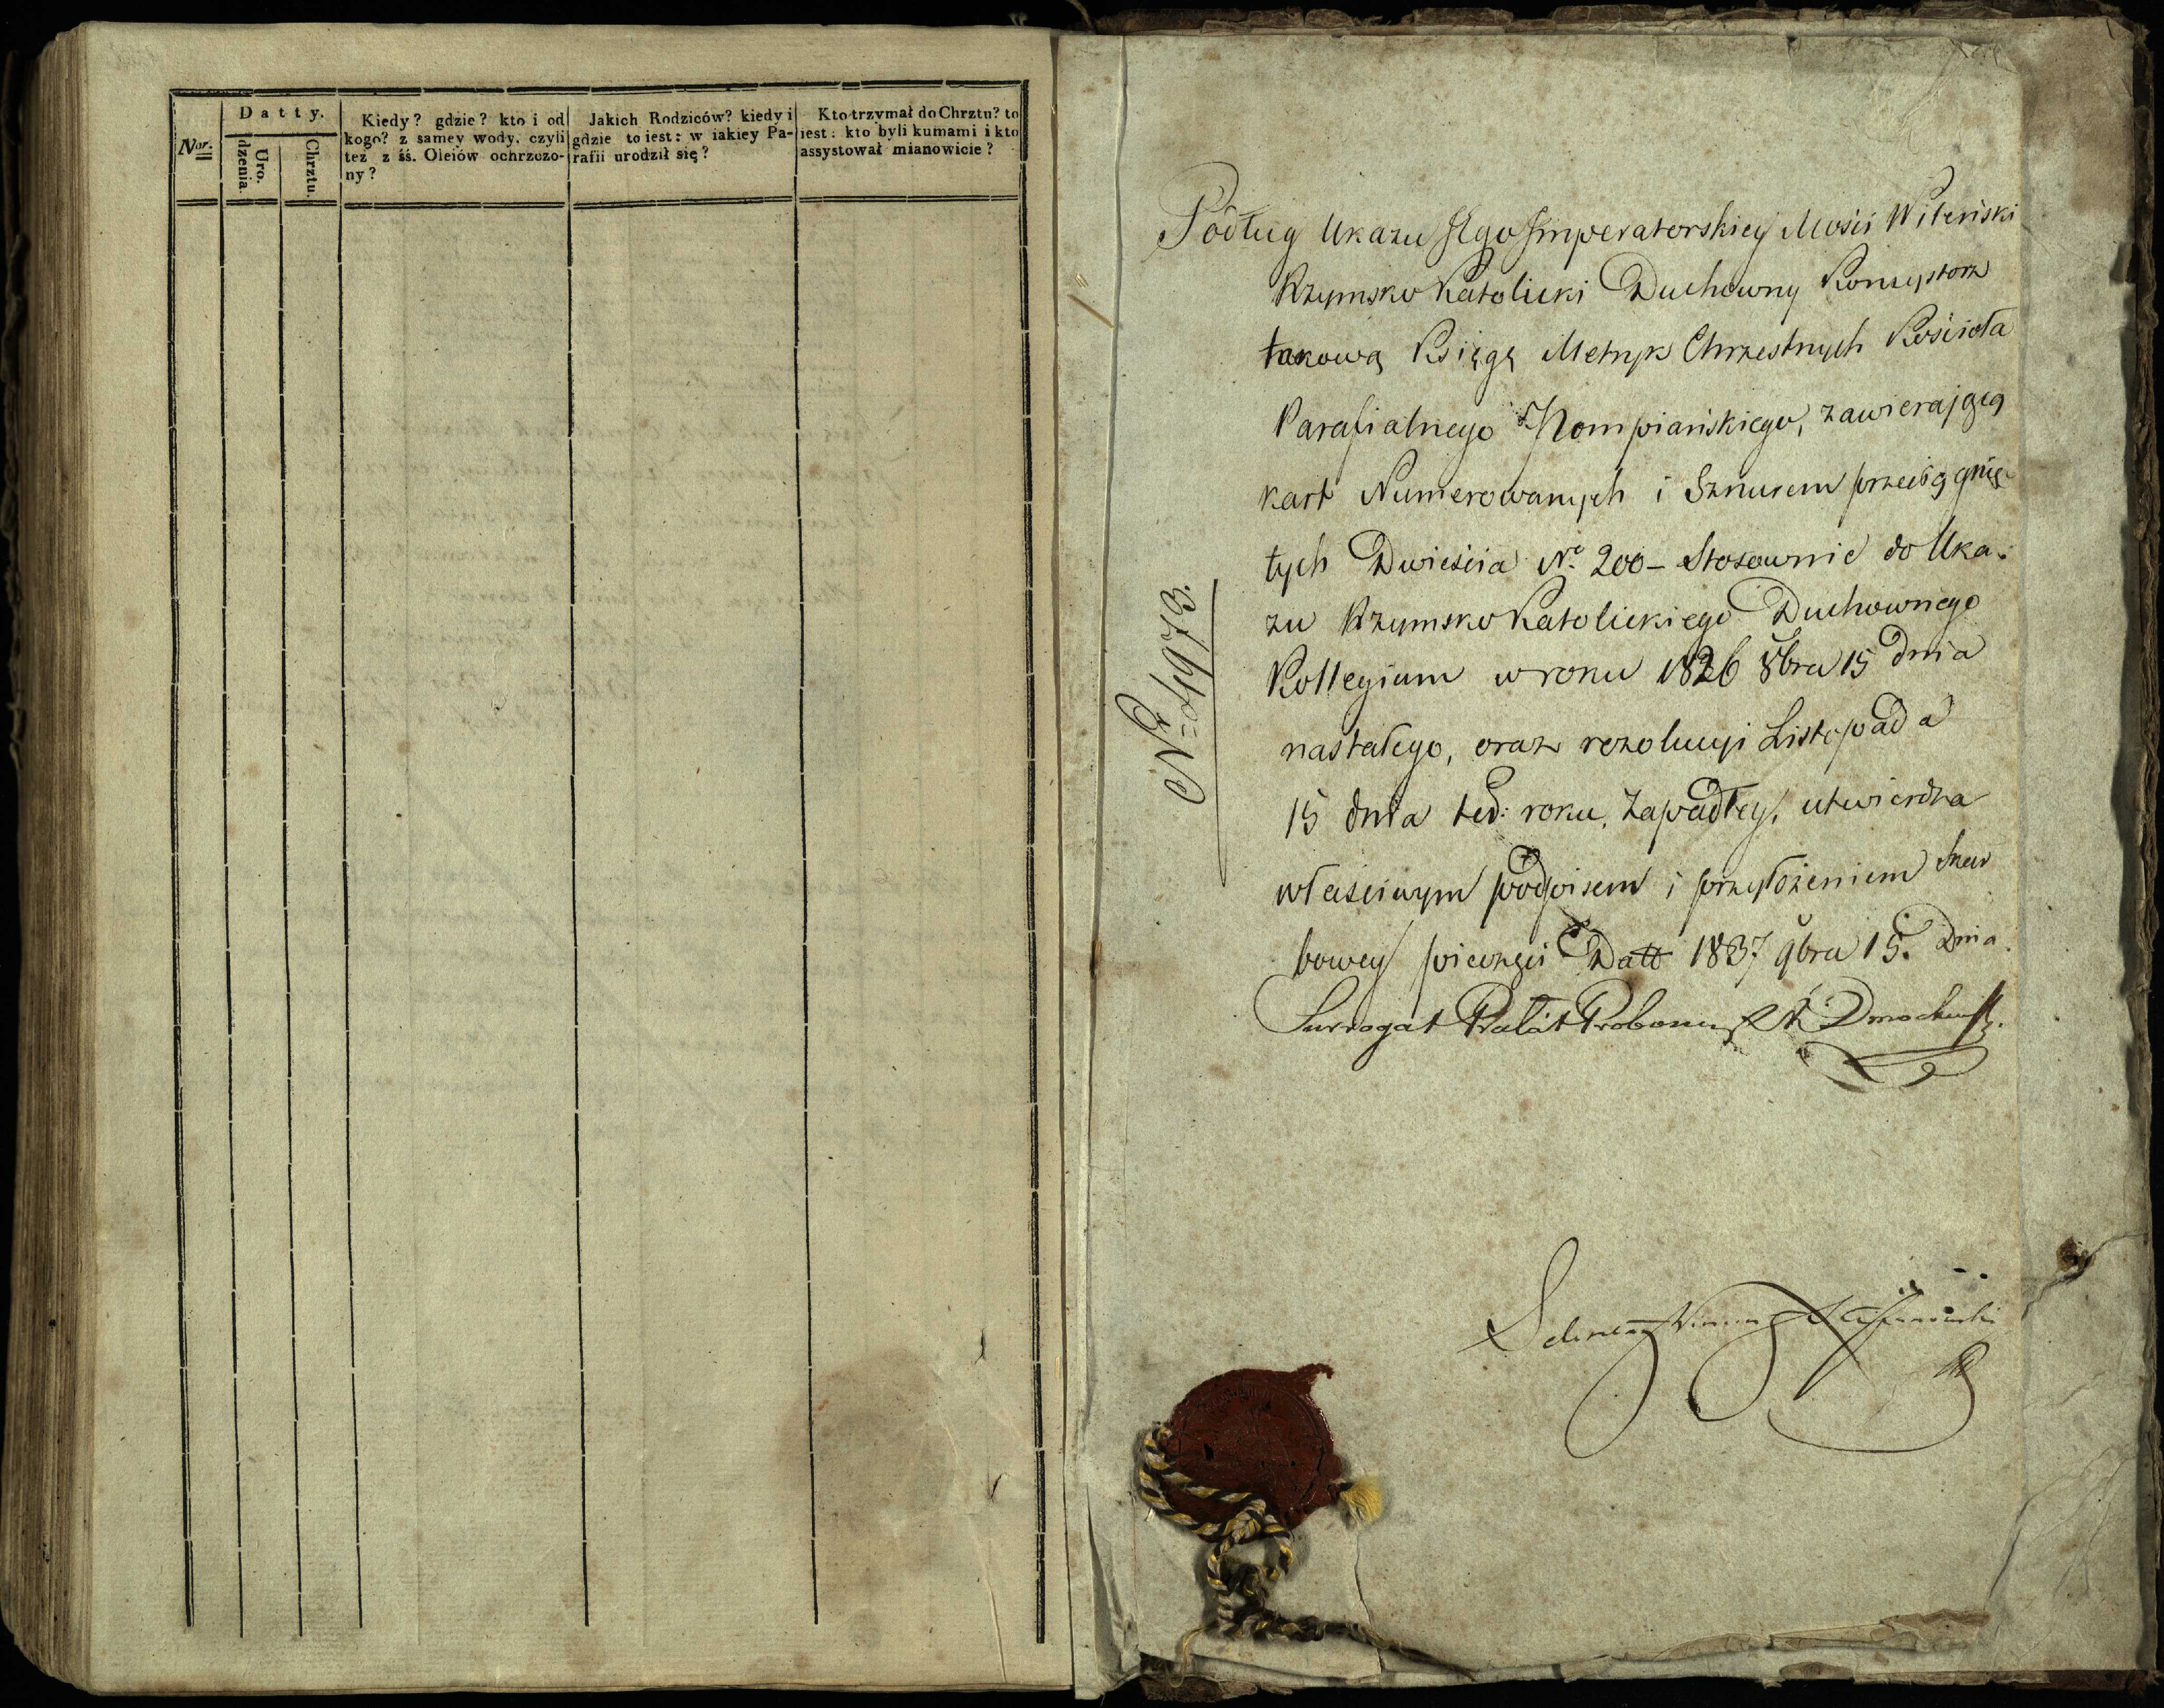 Nor.
Datty.
Uro.
dzenia.
Chrztu.
Kiedy? gdzie? kto i od
kogo? z samey wody, czyli
tez z śś. Oleiów ochrzczo-
ny?
Jakich Rodziców? kiedy i
gdzie to iest: w iakiey Pa-
rafii urodził się?
Kto trzymał do Chrztu? to
iest: kto byli kumami i kto
assystował mianowicie?
Podług Ukazu Jego Imperatorskiey Mości Wileński
Rzymsko Katolicki Duchowny Konsystorz
takową Księgę Metryk Chrzestnych Kościoła
Parafialnego Kompiańskiego, zawierającą
kart Numerowanych i Sznurem przeciągnię-
tych Dwieścia No 200 – Stosownie do Uka-
zu Rzymsko Katolickiego Duchownego
Kollegium w roku 1826 8bra 15 dnia
nastałego, oraz rezolucyi Listopada
15 dnia teó: roku, zapadłey, utwierdza
właściwym podpisem i przyłożeniem Skar
bowey pieczęci Datt 1837 9bra 15. Dnia.
Surrogat Prałat Dmochowski
Nr 4973.
Sekretarz